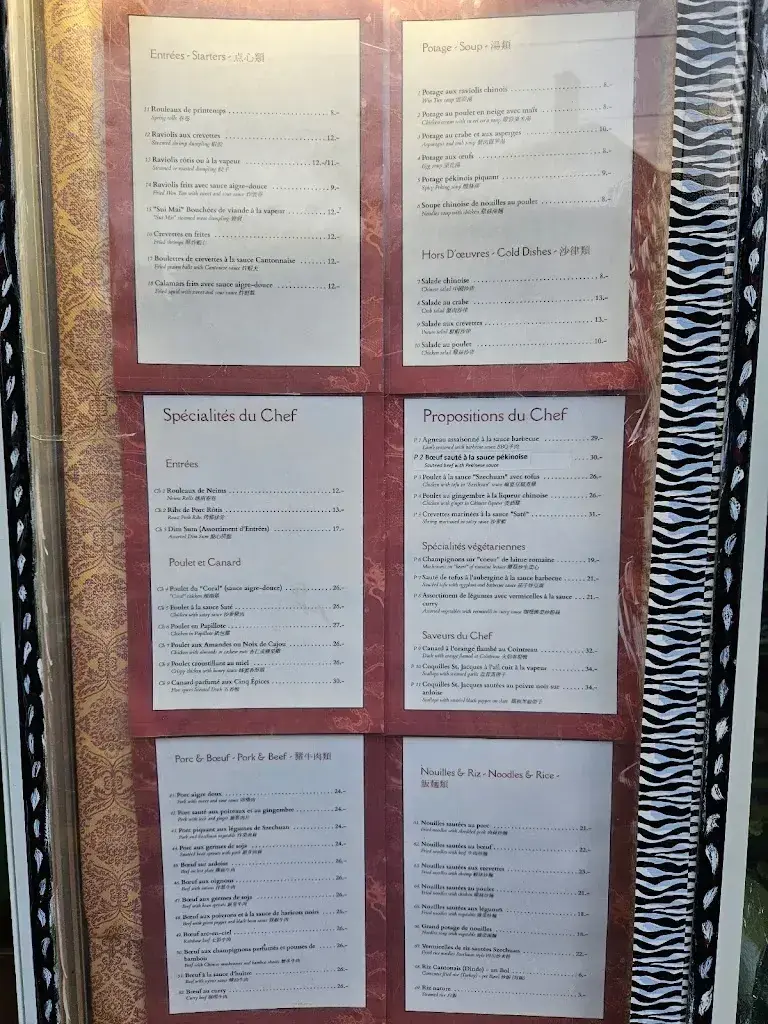 Entrées - Starters - 点心類
11 Rouleaux de printemps 8.-
Spring rolls 春卷
12 Raviolis aux crevettes 12.-
Steamed shrimp dumpling
13 Raviolis rôtis ou à la vapeur 12.-/11.-
Steamed or roasted dumpling
14 Raviolis frits avec sauce aigre-douce 9.-
Fried Won Ton with sweet and sour sauce
15 "Sui Mai" Bouchées de viande à la vapeur 12.-
"Sui Mai" steamed meat dumpling
16 Crevettes en frites 12.-
Fried shrimps
17 Boulettes de crevettes à la sauce Cantonnaise 12.-
Fried prawn balls with Cantonese sauce
18 Calamars frits avec sauce aigre-douce 12.-
Fried squid with sweet and sour sauce
Potage - Soup - 湯類
1 Potage aux raviolis chinois 8.-
Won Ton soup
2 Potage au poulet en neige avec maïs 8.-
3 Potage au crabe et aux asperges 10.-
Asparagus and crab soup
4 Potage aux œufs
Egg soup
5 Potage pékinois piquant 9.-
Spicy Peking soup
6 Soupe chinoise de nouilles au poulet 8.-
Noodles soup with chicken
Hors D'œuvres - Cold Dishes - 沙律類
7 Salade chinoise 8.-
Chinese salad
8 Salade au crabe 13.-
Crab salad
9 Salade aux crevettes 13.-
Prawn salad
10 Salade au poulet 10.-
Chicken salad
Spécialités du Chef
Entrées
Ch 1 Rouleaux de Neims 12.-
Neims Rolls
Ch 2 Ribs de Porc Rôtis 13.-
Roast Pork Ribs
Ch 3 Dim Sum (Assortiment d'Entrées) 17.-
Assorted Dim Sum
Poulet et Canard
Ch 4 Poulet du "Coral" (sauce aigre-douce) 26.-
"Coral" chicken
Ch 5 Poulet à la sauce Saté 26.-
Chicken with satey sauce
Ch 6 Poulet en Papillote 27.-
Chicken in Papillote
Ch 7 Poulet aux Amandes ou Noix de Cajou 26.-
Chicken with almonds or cashew nuts
Ch 8 Poulet croustillant au miel 26.-
Crispy chicken with honey sauce
Ch 9 Canard parfumé aux Cinq Épices 30.-
Five spice scented Duck
Propositions du Chef
P 1 Agneau assaisonné à la sauce barbecue 29.-
Lamb seasoned with barbecue sauce
P 2 Bœuf sauté à la sauce pékinoise 30.-
Sautéed beef with Pekinese sauce
P 3 Poulet à la sauce "Szechuan" avec tofus 26.-
Chicken with tofu in "Szechuan" sauce
P 4 Poulet au gingembre à la liqueur chinoise 26.-
Chicken with ginger in Chinese liqueur
P 5 Crevettes marinées à la sauce "Saté" 31.-
Shrimp marinated in satey sauce
Spécialités végétariennes
P 6 Champignons sur "coeur" de laitue romaine 19.-
Mushrooms on "heart" of romaine lettuce
P 7 Sauté de tofus à l'aubergine à la sauce barbecue 21.-
Sautéed tofu with eggplant and barbecue sauce
P 8 Assortiment de légumes avec vermicelles à la sauce curry 21.-
Assorted vegetables with vermicelli in curry sauce
Saveurs du Chef
P 9 Canard à l'orange flambé au Cointreau 32.-
Duck with orange flamed at Cointreau
P 10 Coquilles St. Jacques à l'ail cuit à la vapeur 34.-
Scallops with steamed garlic
P 11 Coquilles St. Jacques sautées au poivre noir sur ardoise 34.-
Scallops with sautéed black pepper on slate
Porc & Bœuf - Pork & Beef - 豬牛肉類
41 Porc aigre doux 24.-
Pork with sweet and sour sauce
42 Porc sauté aux poireaux et au gingembre 24.-
Pork with leek and ginger
43 Porc piquant aux légumes de Szechuan 24.-
Pork and Szechuan vegetable
44 Porc aux germes de soja 24.-
Sautéed bean sprouts with pork
45 Bœuf sur ardoise 26.-
Beef on hot plate
46 Bœuf aux oignons 26.-
Beef with onions
47 Bœuf aux germes de soja 26.-
Beef with bean sprouts
48 Bœuf aux poivrons et à la sauce de haricots noirs 26.-
Beef with green pepper and black bean sauce
49 Bœuf arc-en-ciel 26.-
Rainbow beef
50 Bœuf aux champignons parfumés et pousses de bambou 26.-
Beef with Chinese mushrooms and bamboo shoots
51 Bœuf à la sauce d'huître 26.-
Beef with oyster sauce
52 Bœuf au curry 26.-
Curry beef
Nouilles & Riz - Noodles & Rice - 飯麵類
61 Nouilles sautées au porc 21.-
Fried noodles with shredded pork
62 Nouilles sautées au bœuf 22.-
Fried noodles with beef
63 Nouilles sautées aux crevettes 23.-
Fried noodles with shrimp
64 Nouilles sautées au poulet 21.-
Fried noodles with chicken
65 Nouilles sautées aux légumes 18.-
Fried noodles with vegetable
66 Grand potage de nouilles
Noodles soup with vegetable
67 Vermicelles de riz sautées Szechuan 22.-
Fried rice noodles Szechuan style
68 Riz Cantonais (Dinde) - un Bol 6.-
69 Riz nature 3.-
Steamed rice